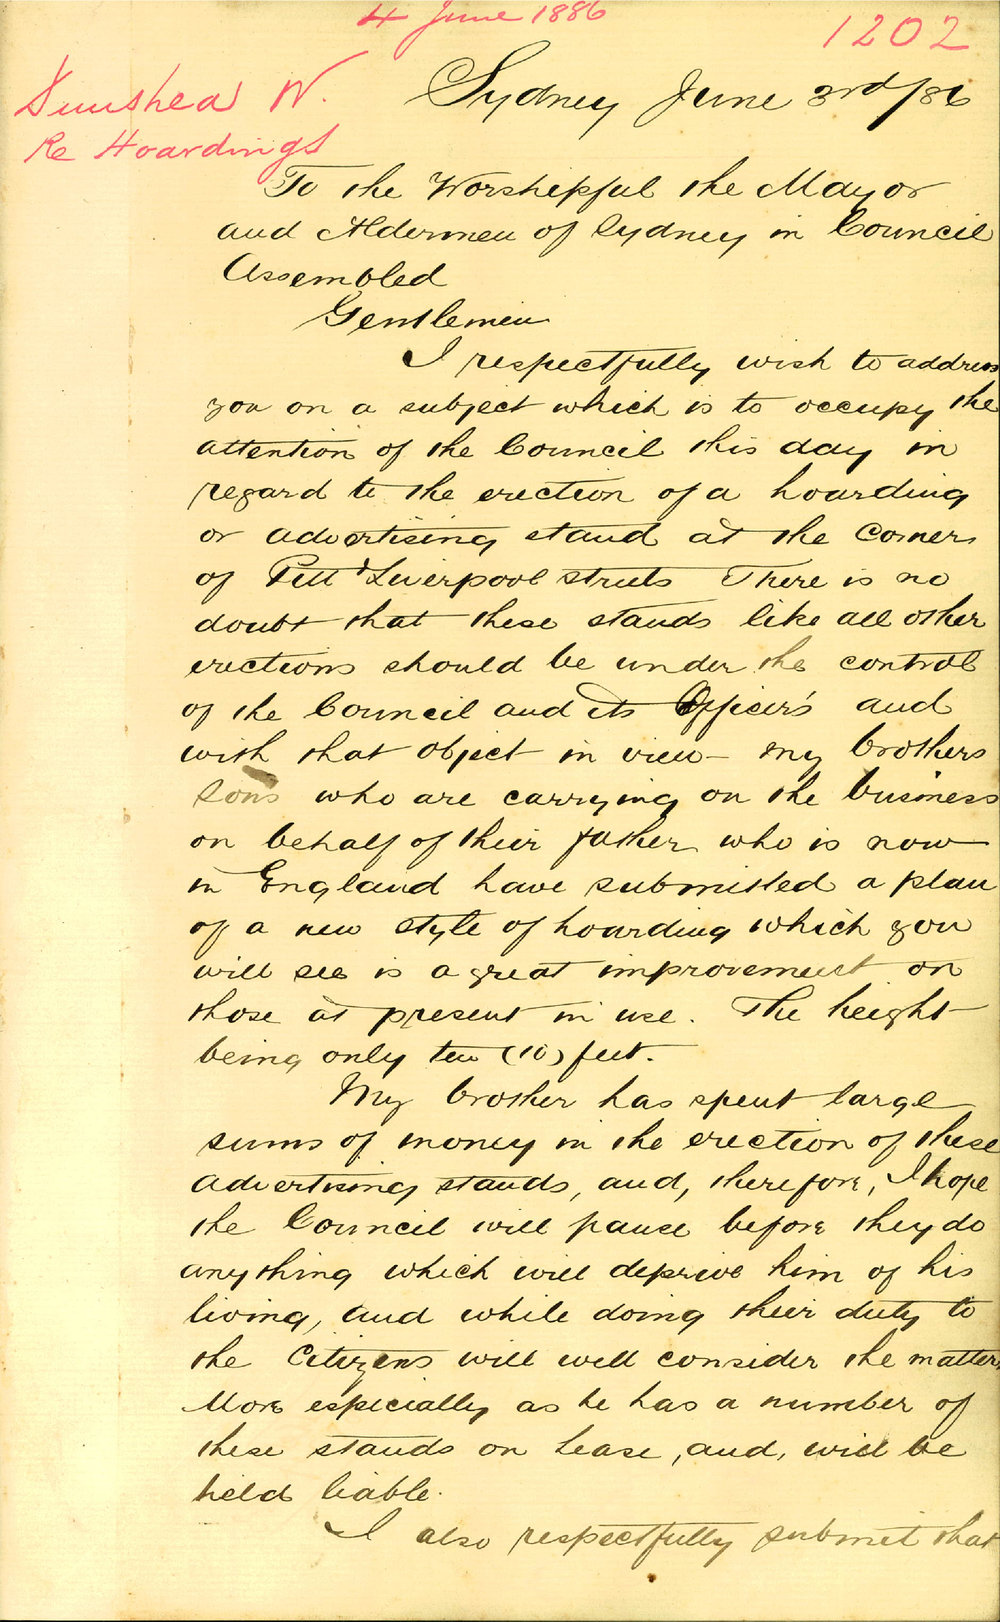 4 June 1886
1202
Dunshea W.
Re Hoardings
Sydney June 3rd/86
To the Worshipful the Mayor
and Aldermen of Sydney in Council
Assembled
Gentlemen
I respectfully wish to address
you on a subject which is to occupy the
attention of the Council this day in
regard to the erection of a hoarding
or advertising stand at the Corners
of Pitt & Liverpool Streets There is no
doubt that these stands like all other
erections should be under the control
of the Council and its Officer's and
with that object in view - my brothers
sons who are carrying on the business
on behalf of their father who is now
in England have submitted a plan
of a new style of hoarding which you
will see is a great improvement on
those at present in use. The height
being only ten (10) feet.
My brother has spent large
sums of money in the erection of these
advertising stands, and, therefore, I hope
the Council will pause before they do
anything which will deprive him of his
living, and while doing their duty to
the Citizens will well consider the matter,
More especially as he has a number of
these stands on lease, and, will be
held liable.
I also respectfully submit that